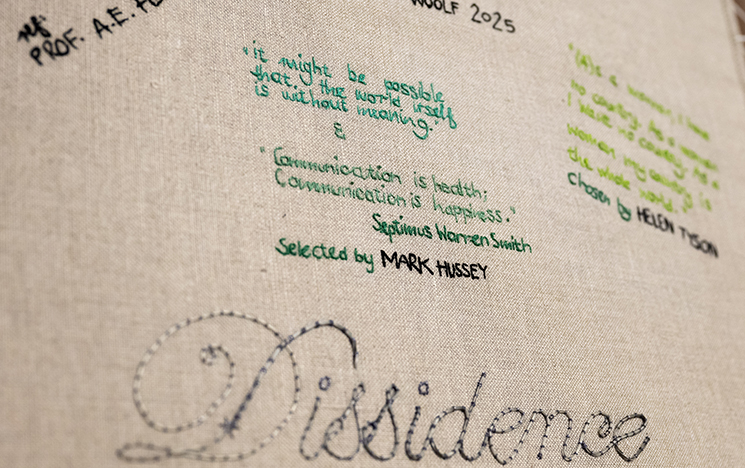 WOOLF 2025
PROF. A.E.
"it might be possible
that the world itself
is without meaning."
&
"Communication is health;
Communication is happiness."
Septimus Warren Smith
Selected by MARK HUSSEY
"(A)s a woman, I have
no country. As a woman
I have no country. As a
woman my country is
the whole world."
chosen by HELEN TYSON
Dissidence